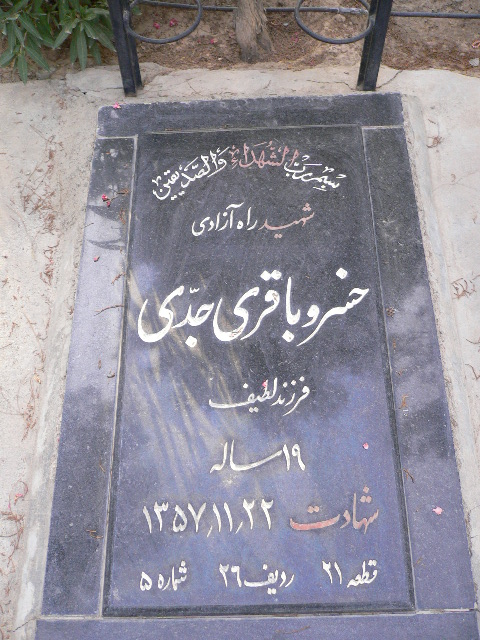 بسم رب الشهداء والصدیقین
شهید راه آزادی
خسرو باقری جدّی
فرزند لطیف
۱۹ ساله
شهادت ۱۳۵۷٫۱۱٫۲۲
قطعه ۲۱ ردیف ۲۶ شماره ۵